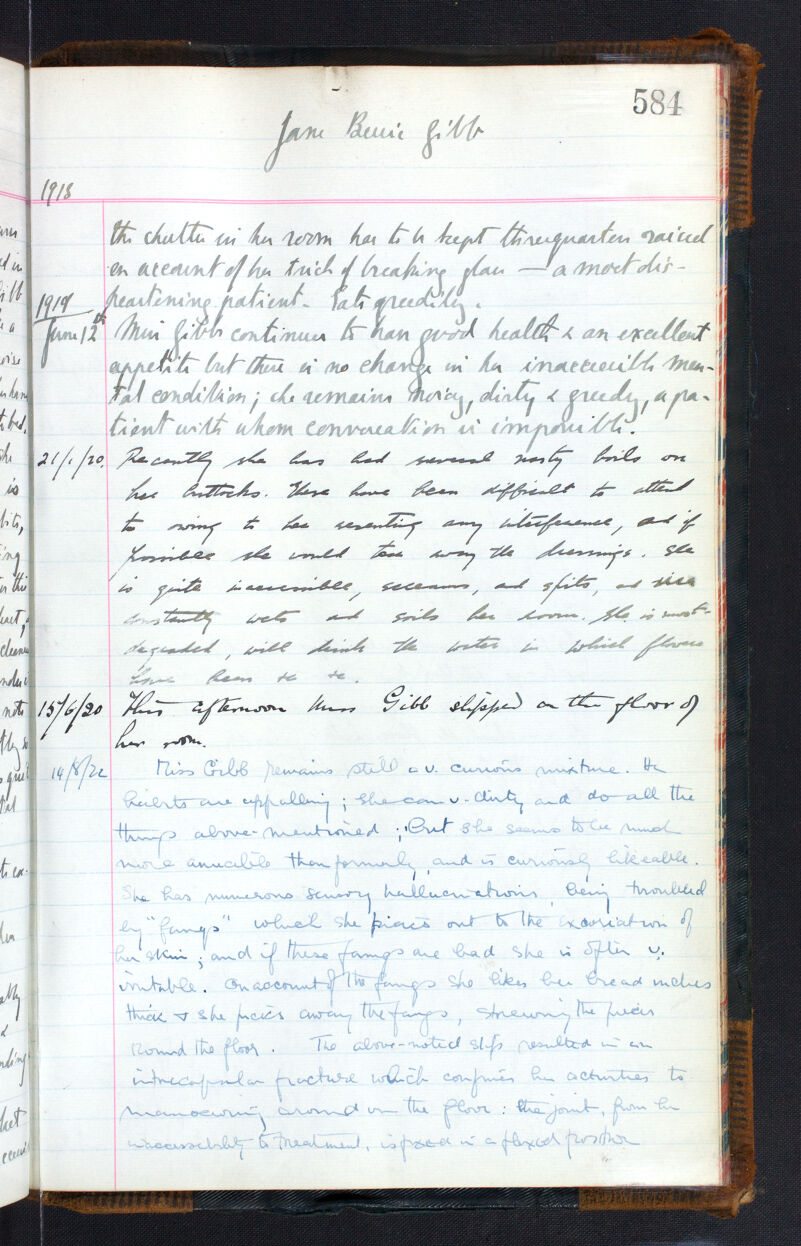 584
Jane Gibb
1918
the shutter in her room has to be kept threequarters raised
on account of her trick of breaking glass — a most dis-
heartening patient. Eats greedily.
1919
June 12th Miss Gibb continues to have good health & an excellent
appetite but there is no change in her inaccessible men-
tal condition; she remains noisy, dirty & greedy, a pa-
tient with whom conversation is impossible.
21/1/20. Recently she has had several nasty boils on
her buttocks. These have been difficult to attend
to owing to her resenting any interference, and if
possible she would tear away the dressings. She
is quite inaccessible, screams, and spits, and
constantly wets and soils her room. She is most
degraded, will drink the water in which flowers
have been &c &c.
15/6/20 This afternoon Miss Gibb slipped on the floor of
her room.
14/8/22 Miss Gibb remains still a v. curious mixture. Her
habits are appalling; she can v. dirty and do all the
things above-mentioned; but she seems to be much
more amicable than formerly, and is curiously likeable.
She has numerous sensory hallucinations, being troubled
by "fangs" which she picks out to the excoriation of
her skin; and if these fangs are bad she is often v.
irritable. On account of the fangs she likes her bread inches
thick & she picks away the fangs, strewing the pieces
round the floor. The above-noted slip resulted in an
intracapsular fracture which confines her activities to
manoevring around on the floor: the joint, from her
inaccessibility to treatment, is fixed in a flexed position